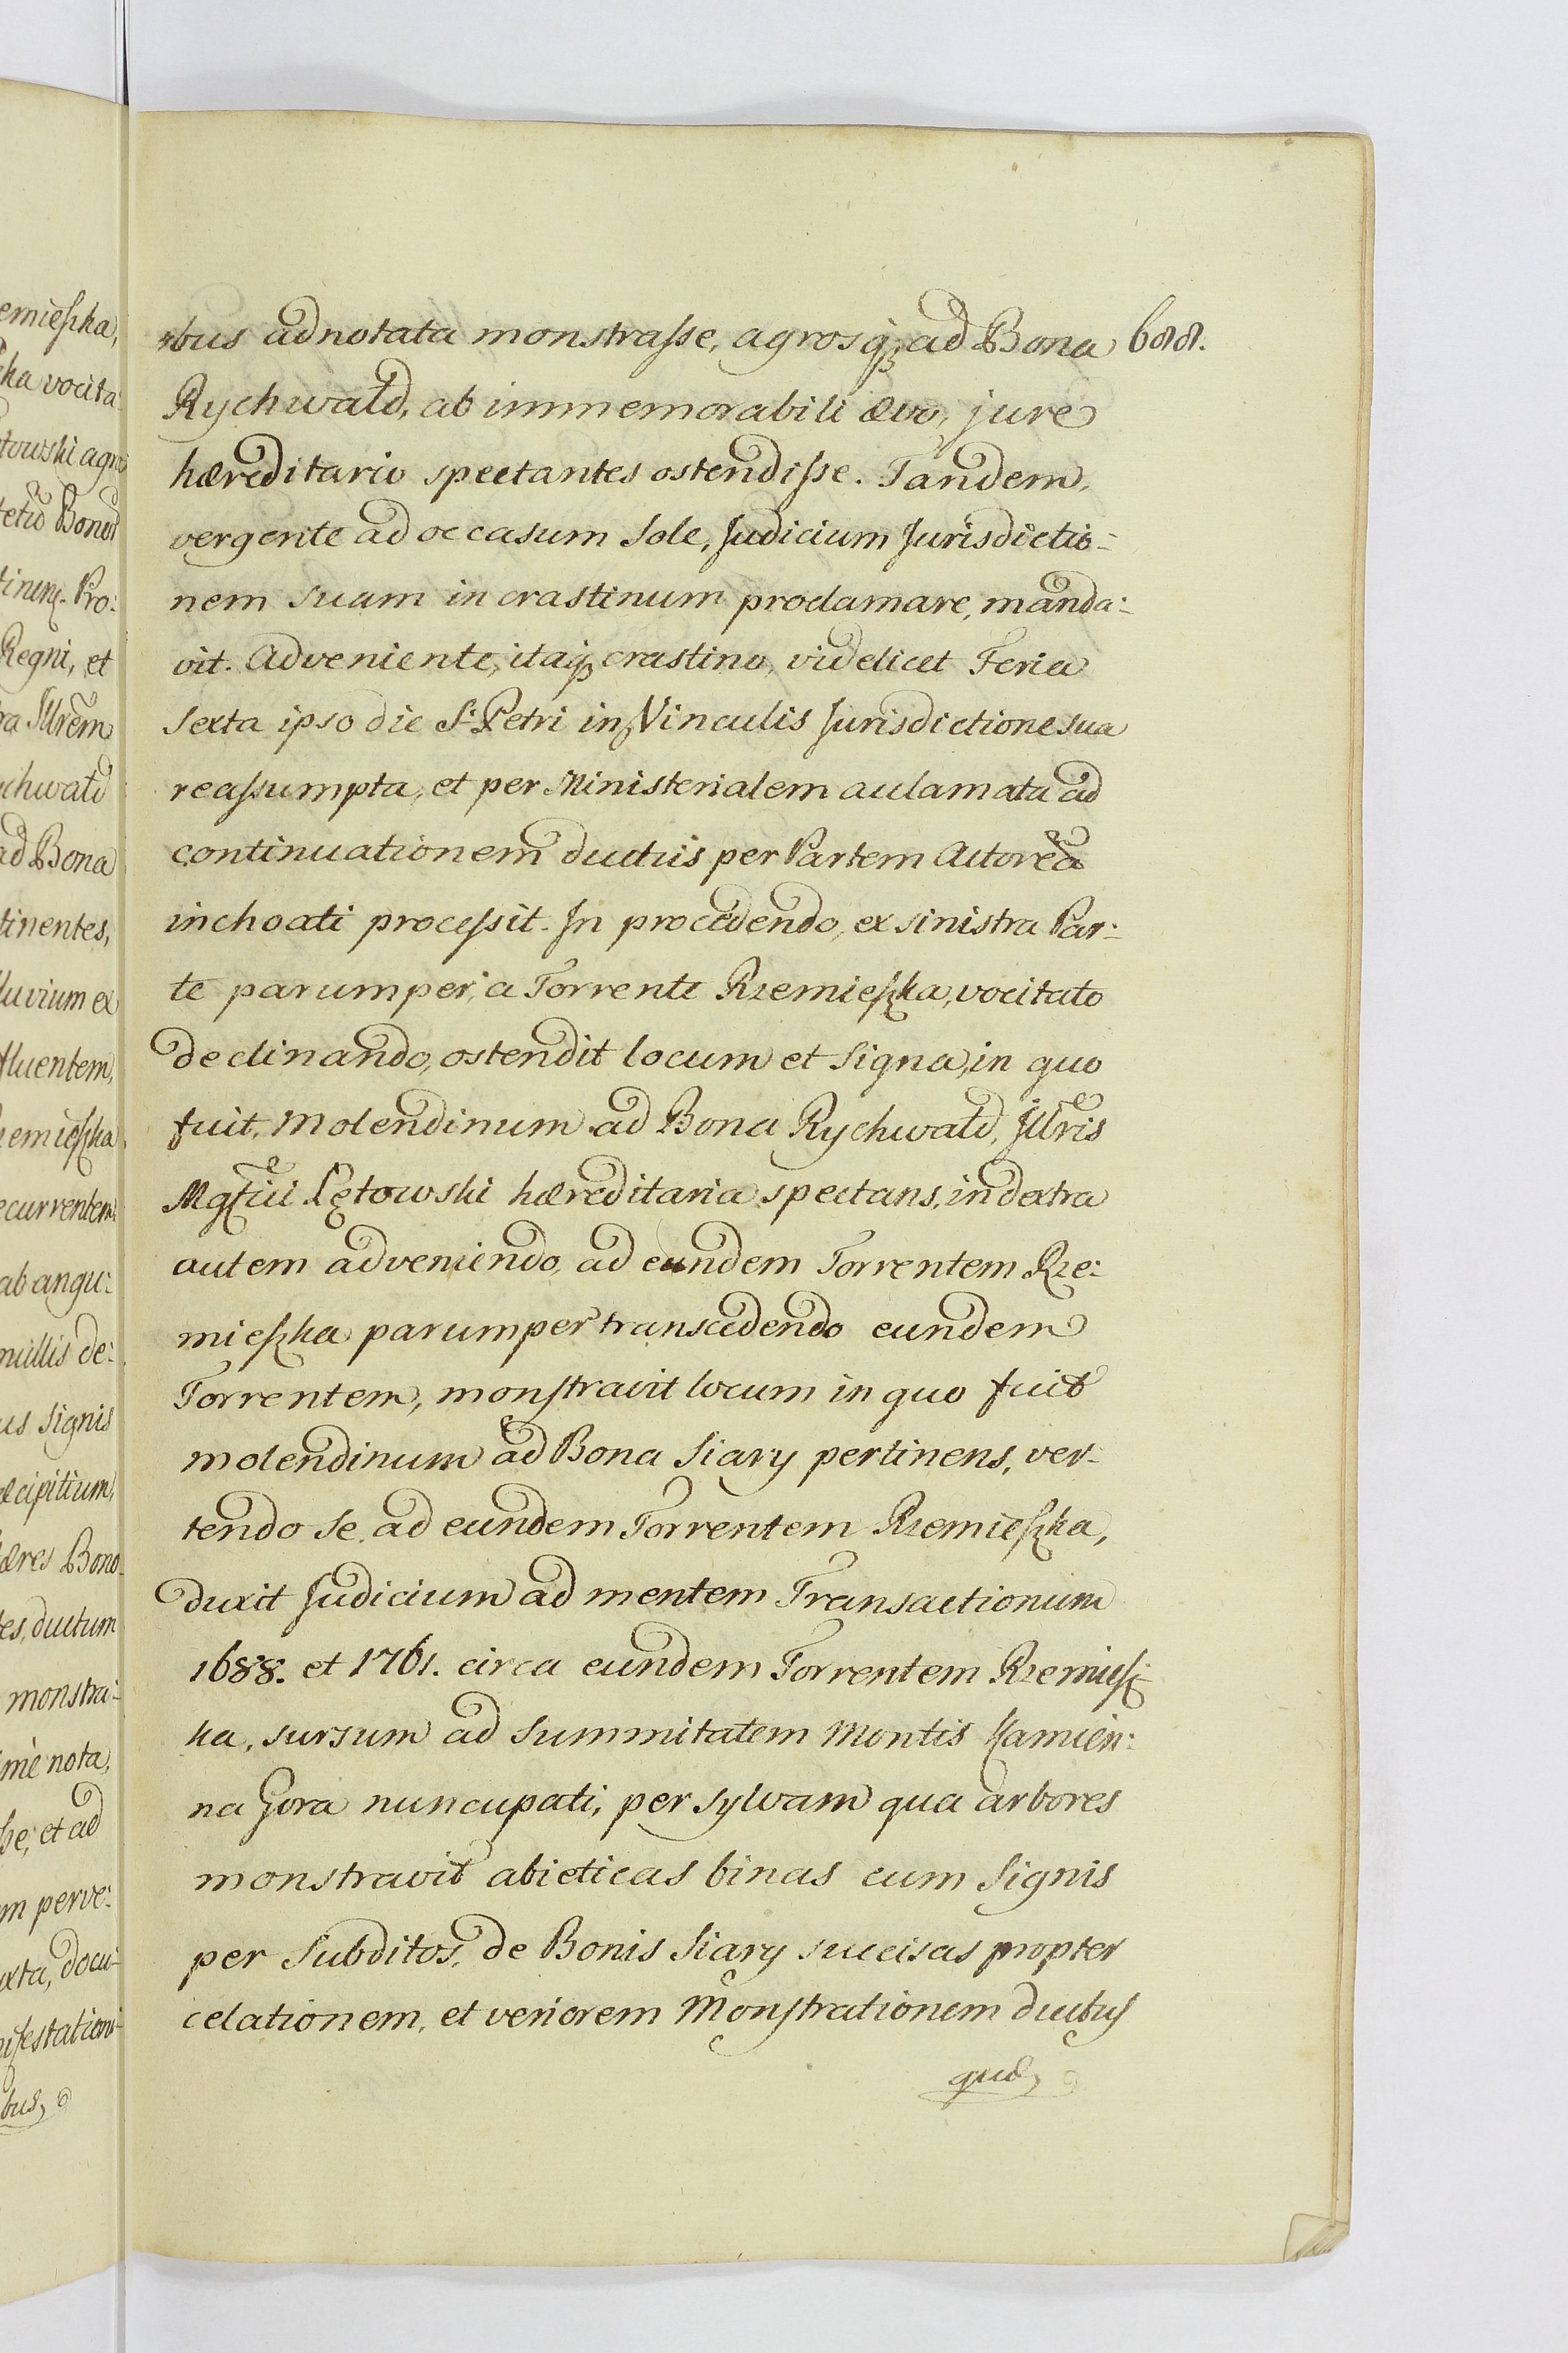 bus adnotata monstrasse, agrosq; ad Bona
Rychwałd, ab immemorabili ævo, jure
hæreditario spectantes ostendisse. Tandem,
vergente ad occasum Sole, Judicium Jurisdictio:
nem suam in crastinum proclamare, manda:
vit. Adveniente, itaq; crastino, videlicet Feria
Sexta ipso die S: Petri in Vinculis Jurisdictione sua
reassumpta, et per Ministerialem acclamata ad
continuationem ductus per Partem Actorea
inchoati processit. In procedendo, ex sinistra Par:
te parumper, a Torrente Rzemieszka, vocitato
declinando, ostendit locum et Signa, in quo
fuit, Molendinum ad Bona Rychwałd, Jllris
Mgfici Łętowski hæreditaria spectans, in dextra
autem adveniendo, ad eundem Torrentem Rze:
mieszka parumper transcedendo eundem
Torrentem, monstravit locum in quo fuit
molendinum ad Bona Siary pertinens, ver:
tendo se ad eundem Torrentem Rzemieszka,
duxit Judicium ad mentem Transactionum
1688. et 1761. circa eundem Torrentem Rzemiesz:
ka, sursum ad Summitatem Montis Kamien:
na Gora nuncupati, per sylvam qua arbores
monstravit abieticas binas cum Signis
per Subditos, de Bonis Siary succisas propter
celationem, et veriorem Monstrationem ductus
emieszka,
ka vocita:
towski agro
Bonor
Pro:
Regni, et
ra Jllrem
chwałd
ad Bona
tinentes,
luvium ex
fluentem,
emieszka
ecurrentem
ab angu:
nullis de:
us Signis
æcipitium,
æres Bono:
es, ductum
monstra:
me nota,
se, et ad
m perve:
xta, docu:
ifestationi:
bus,